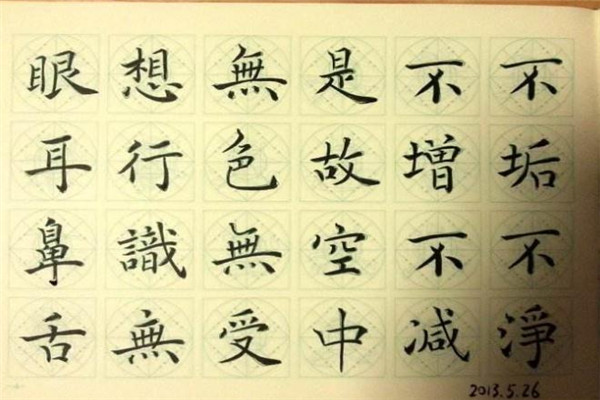 不垢不淨
不增不减
是故空中
無色無受
想行識無
眼耳鼻舌
2013.5.26